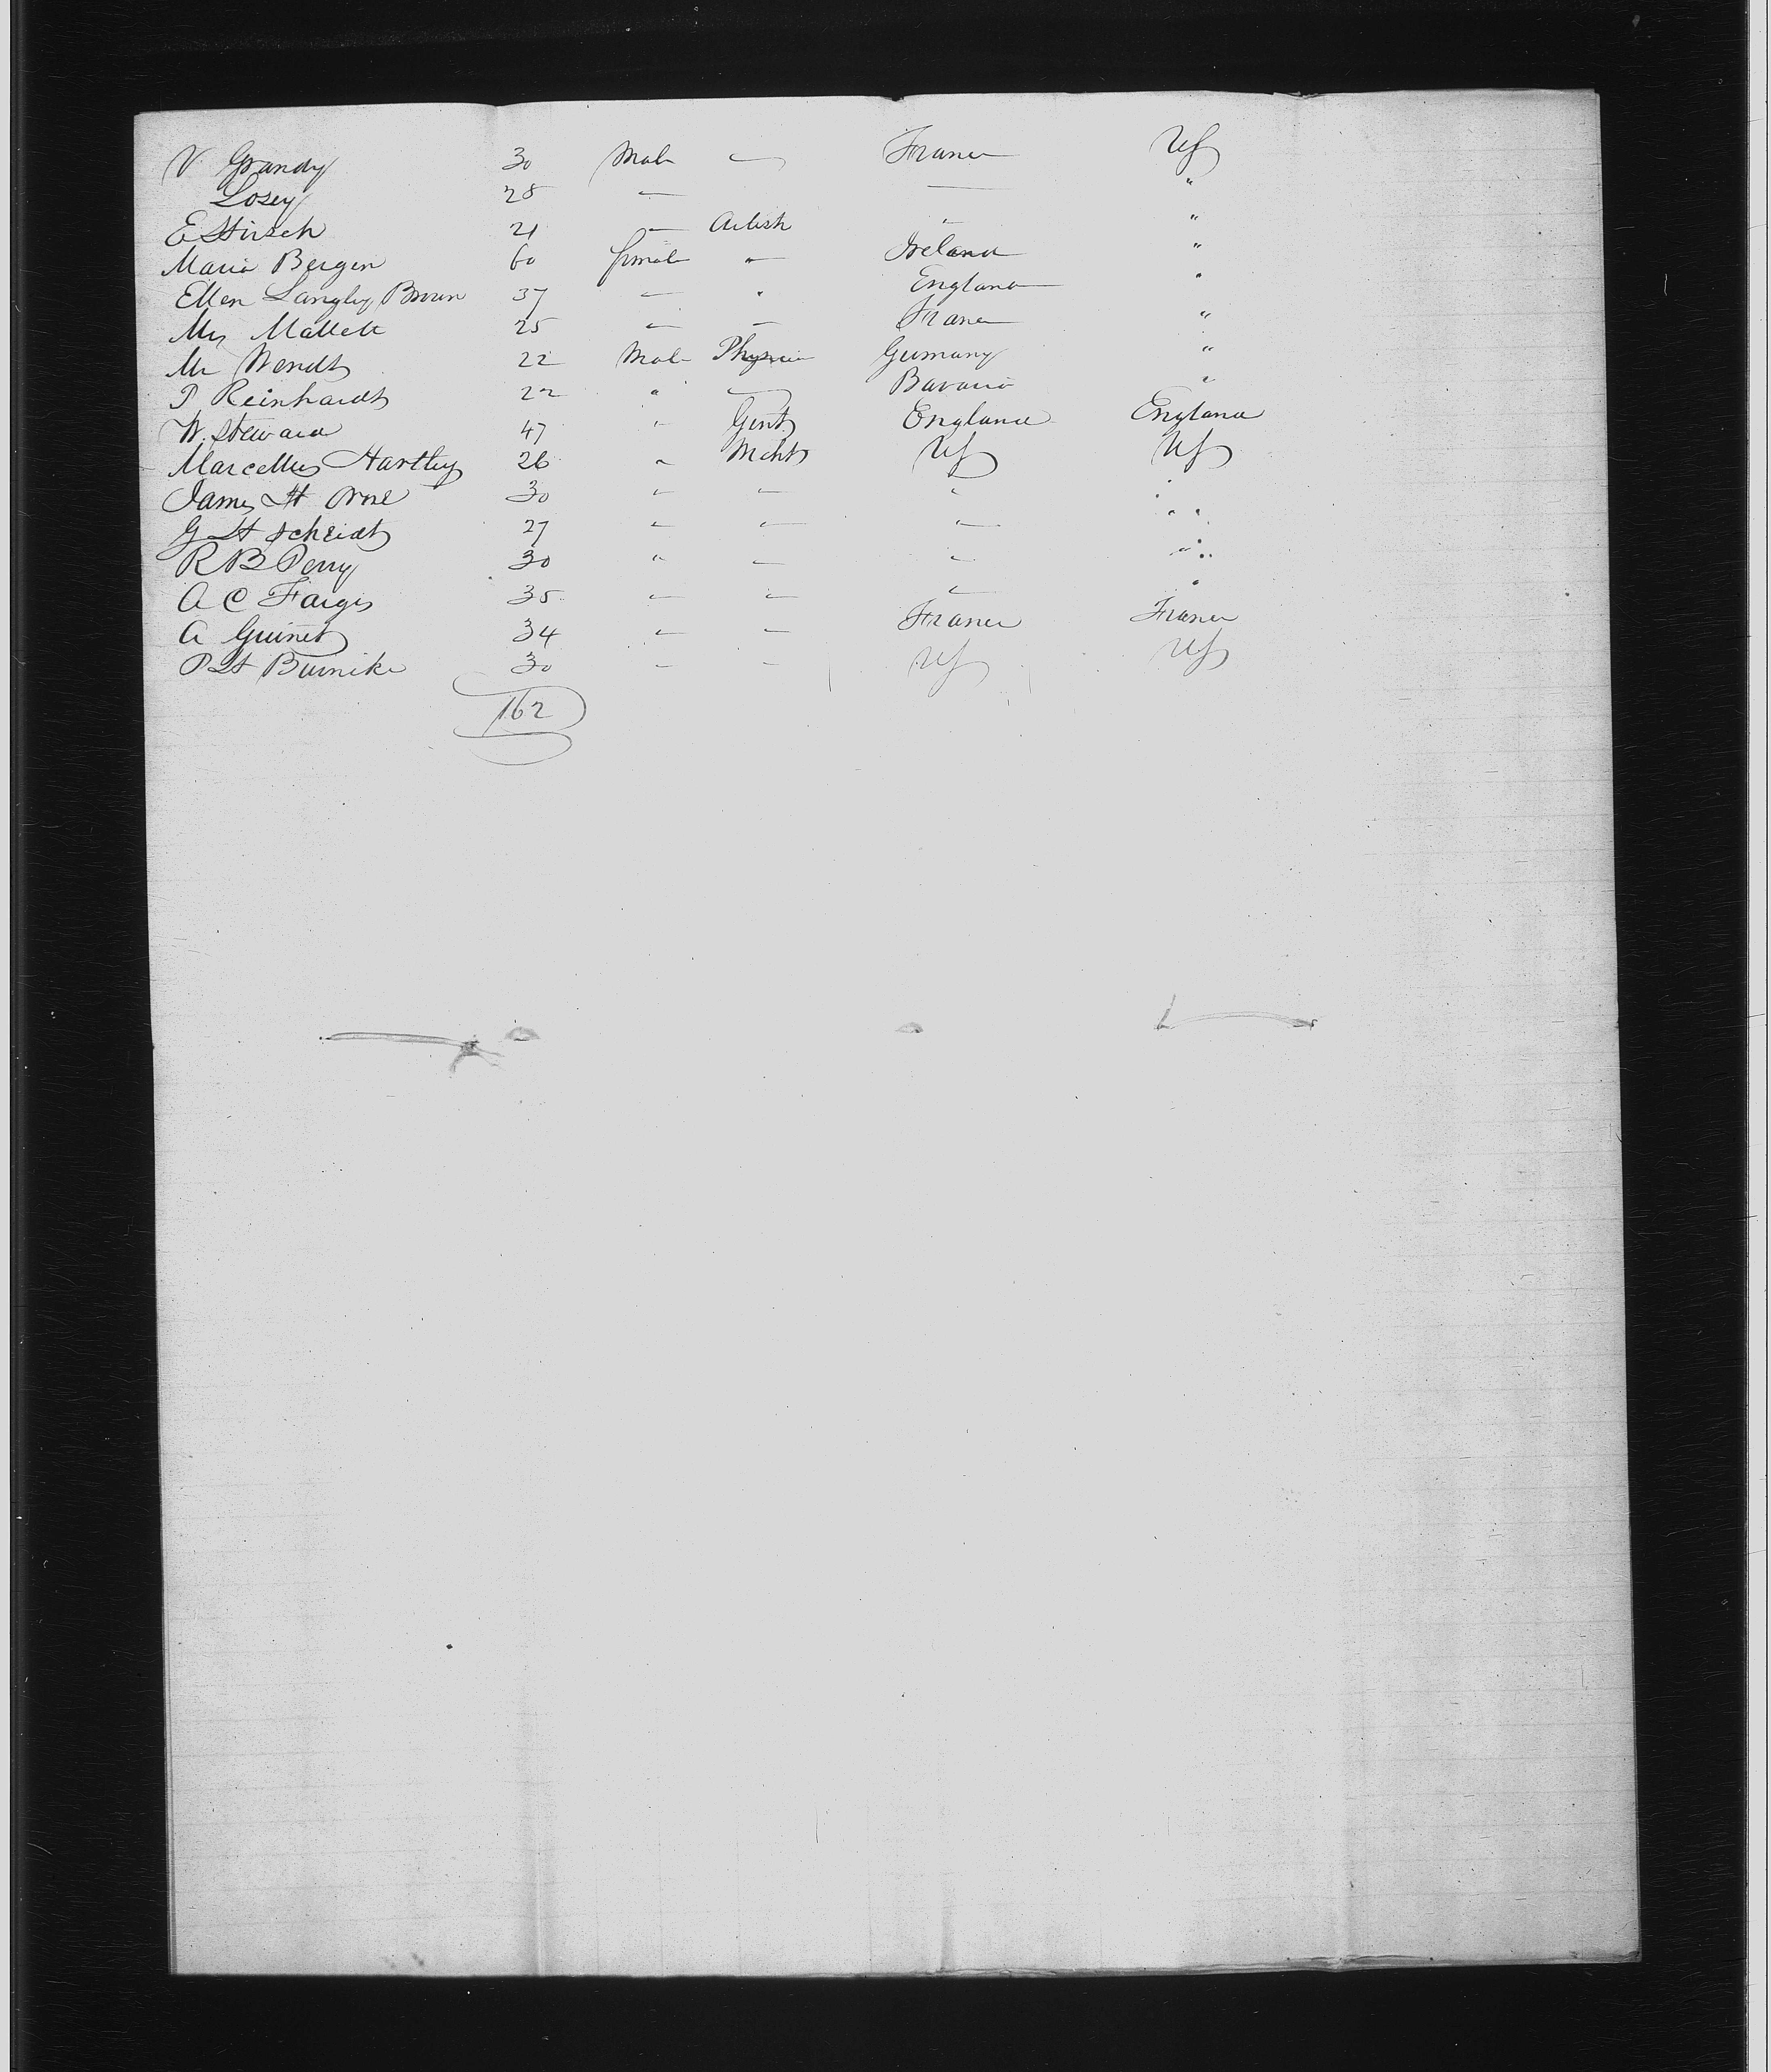 V. Grandy 30 Male " France US
Losey 28 " "
E Hirsch 21 " Artist " "
Maria Bergen 60 female " Ireland "
Ellen Langley Brown 37 " " England "
Mrs Mallett 25 " " France "
Mr Wendt 22 Male Physician Germany "
P Reinhardt 22 " " Bavaria "
W. Steward 47 " Gent. England England
Marcellus Hartley 26 " Mcht US US
James H Orne 30 " " " "
G H Scheidt 27 " " " "
R B Perry 30 " " " "
A C Farges 35 " " " "
A Guinet 34 " " France France
P H Burnike 30 " " US US
162